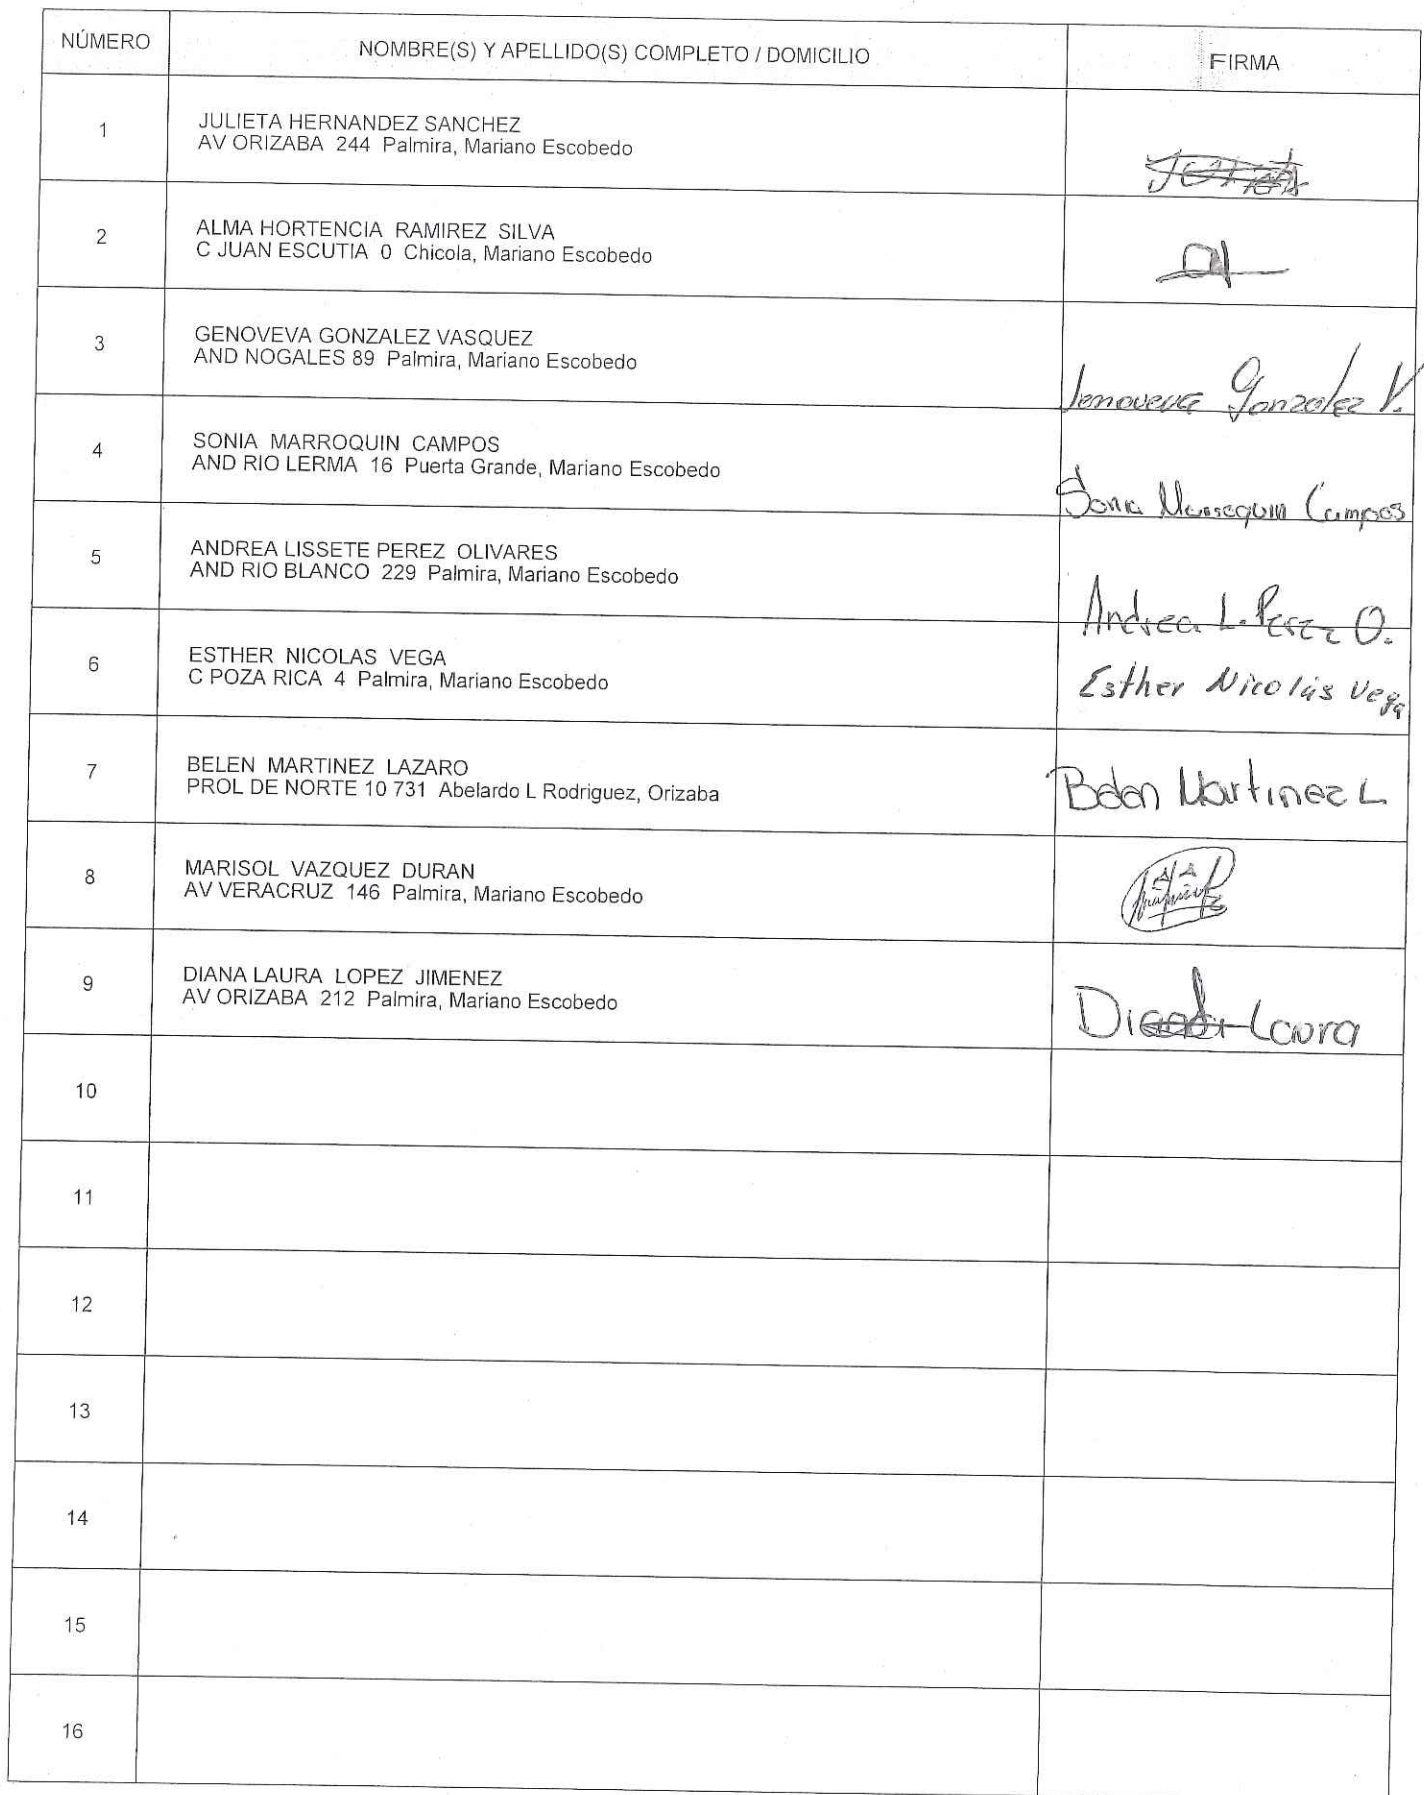 NÚMERO
NOMBRE(S) Y APELLIDO(S) COMPLETO / DOMICILIO
FIRMA
1
JULIETA HERNANDEZ SANCHEZ
AV ORIZABA 244 Palmira, Mariano Escobedo
2
ALMA HORTENCIA RAMIREZ SILVA
C JUAN ESCUTIA 0 Chicola, Mariano Escobedo
3
GENOVEVA GONZALEZ VASQUEZ
AND NOGALES 89 Palmira, Mariano Escobedo
Genoveva Gonzalez V.
4
SONIA MARROQUIN CAMPOS
AND RIO LERMA 16 Puerta Grande, Mariano Escobedo
Sonia Marroquin Campos
5
ANDREA LISSETE PEREZ OLIVARES
AND RIO BLANCO 229 Palmira, Mariano Escobedo
Andrea L. Perez O.
6
ESTHER NICOLAS VEGA
C POZA RICA 4 Palmira, Mariano Escobedo
Esther Nicolás Vega
7
BELEN MARTINEZ LAZARO
PROL DE NORTE 10 731 Abelardo L Rodriguez, Orizaba
Belen Martinez L
8
MARISOL VAZQUEZ DURAN
AV VERACRUZ 146 Palmira, Mariano Escobedo
9
DIANA LAURA LOPEZ JIMENEZ
AV ORIZABA 212 Palmira, Mariano Escobedo
Diana Laura
10
11
12
13
14
15
16